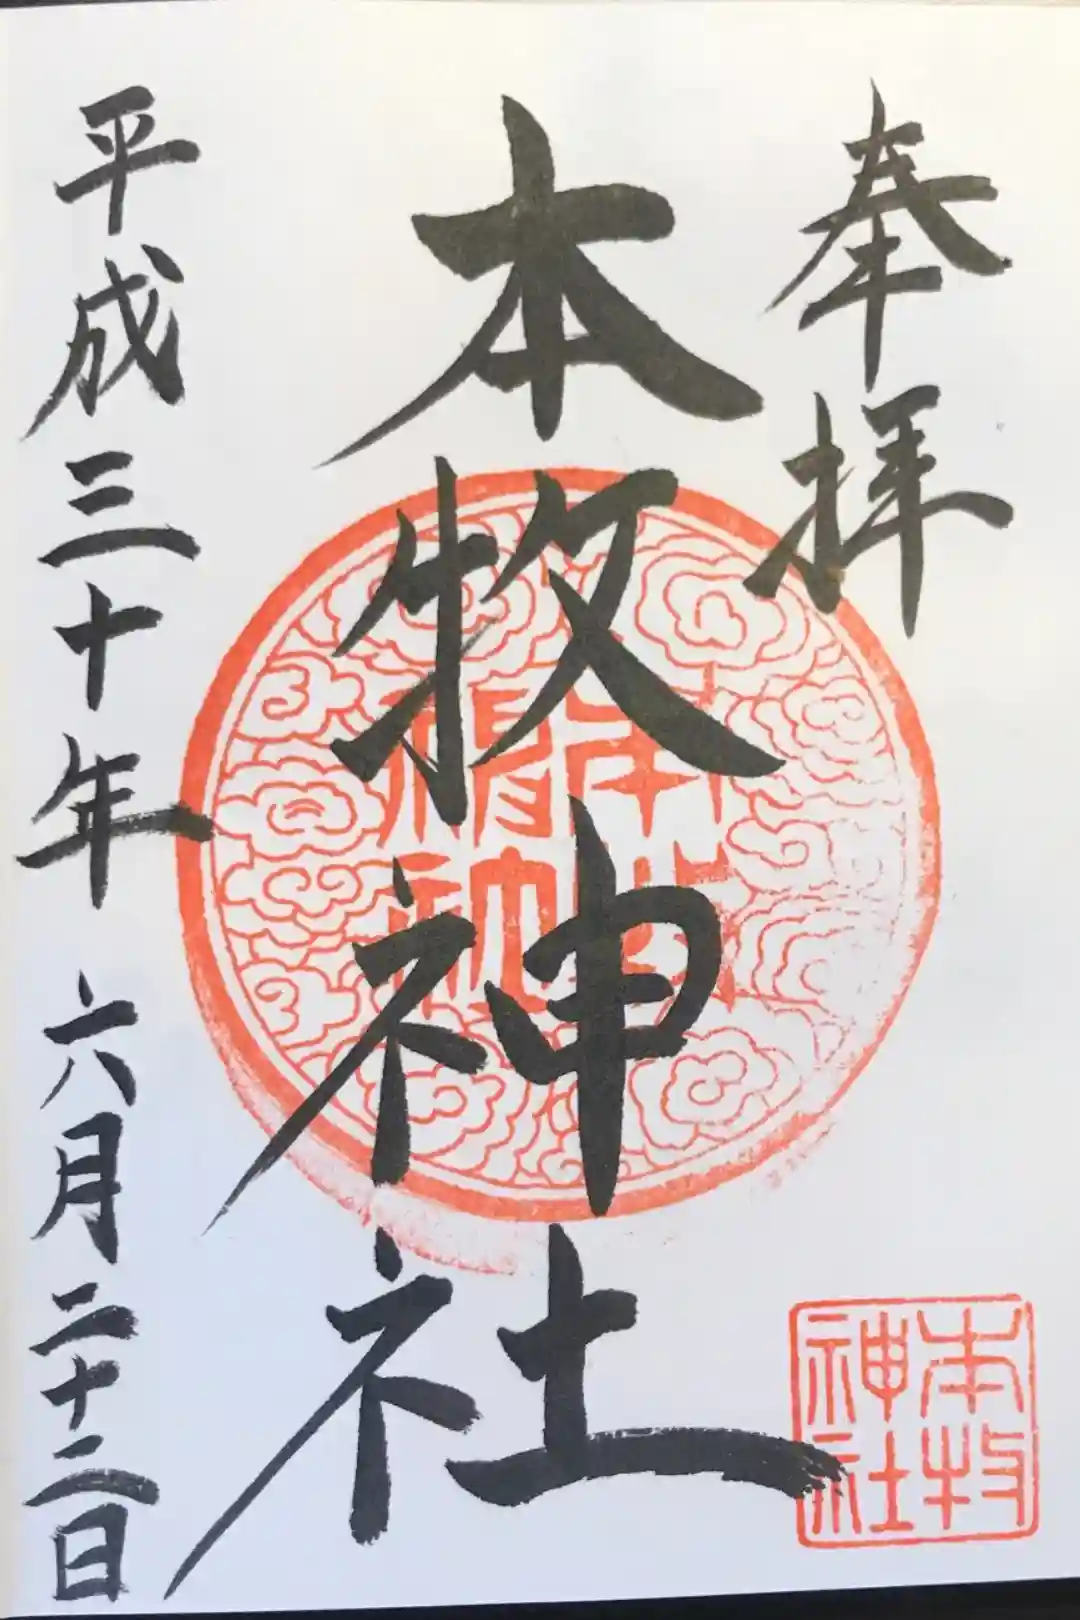 奉拝
本牧神社
平成三十年 六月二十二日
本牧
神社